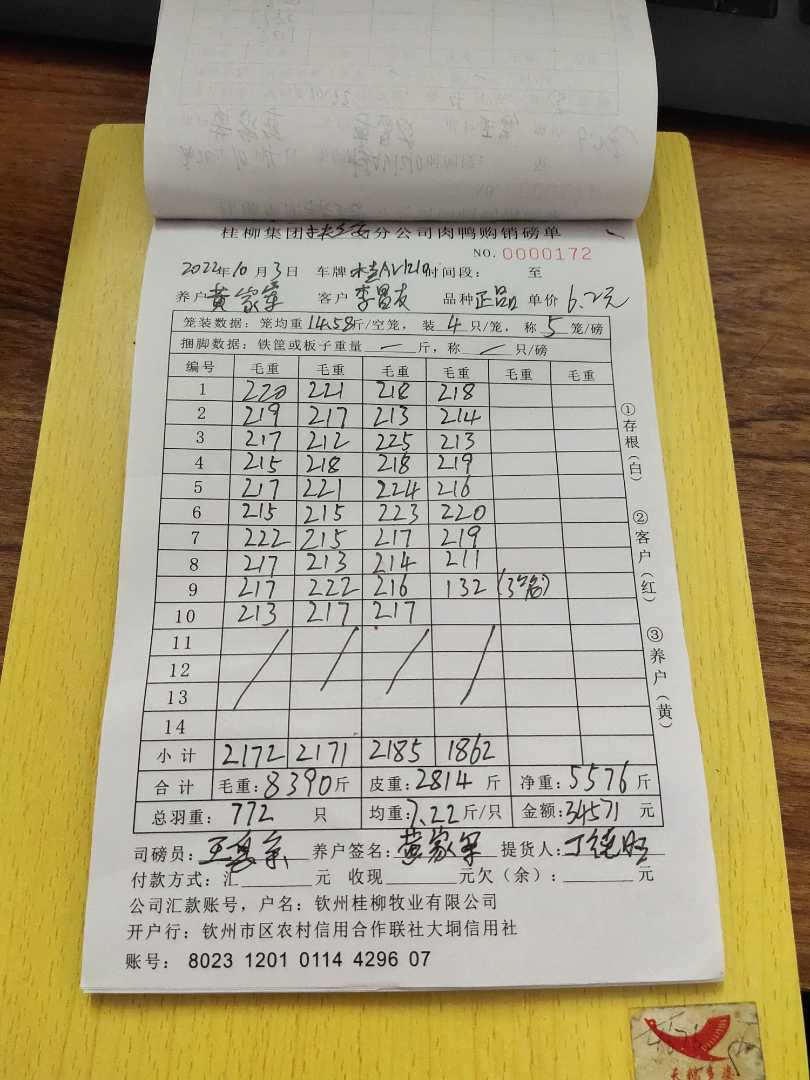 桂柳集团 分公司肉鸭购销磅单
NO. 0000172
2022年10月3日 车牌 桂AV1210 时间段： 至
养户 黄家军 客户 李昌友 品种 正品 单价 6.2元
笼装数据：笼均重14.58斤/空笼，装 4 只/笼，称 5 笼/磅
捆脚数据：铁筐或板子重量 — 斤，称 — 只/磅
编号 毛重 毛重 毛重 毛重 毛重 毛重
1 220 221 218 218
2 219 217 213 214
3 217 212 225 213
4 215 218 218 219
5 217 221 224 216
6 215 215 223 220
7 222 215 217 219
8 217 213 214 211
9 217 222 216 132 (3笼)
10 213 217 217
11
12
13
14
小计 2172 2171 2185 1862
合计 毛重：8390斤 皮重：2814斤 净重：5576斤
总羽重：772 只 均重：7.22斤/只 金额：34571 元
司磅员： 养户签名：黄家军 提货人：丁德旺
付款方式：汇 元 收现 元欠（余）： 元
公司汇款账号，户名：钦州桂柳牧业有限公司
开户行：钦州市区农村信用合作联社大垌信用社
账号：8023 1201 0114 4296 07
①存根（白）
②客户（红）
③养户（黄）